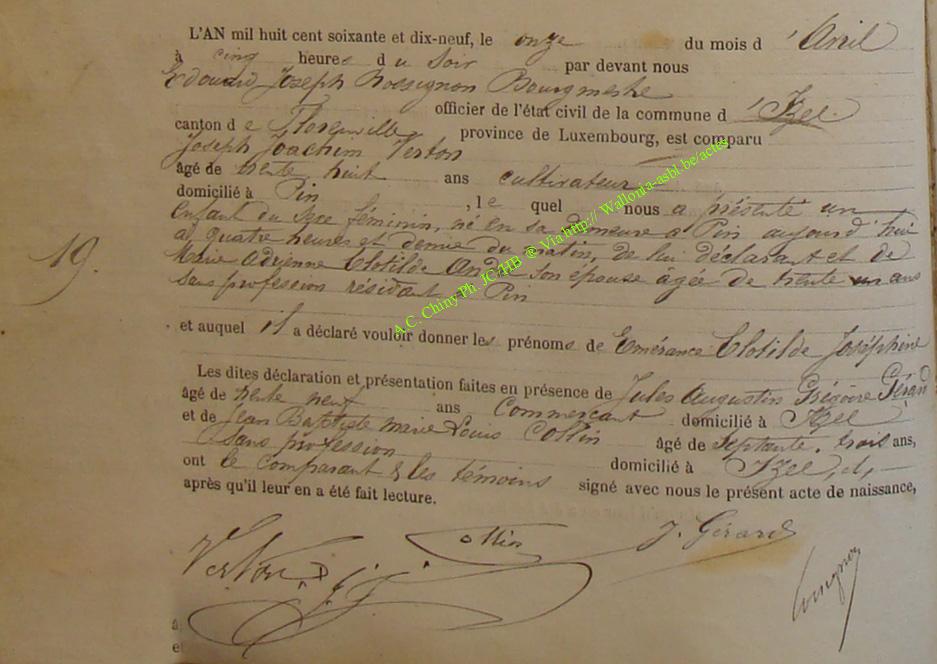 L'AN mil huit cent soixante et dix-neuf, le onze du mois d'Avril
à cinq heures du Soir par devant nous
Edouard Joseph Rossignon Bourgmestre
officier de l'état civil de la commune d'Izel
canton de Florenville province de Luxembourg, est comparu
Joseph Joachim Verton
âgé de trente huit ans cultivateur
domicilié à Pin, lequel nous a présenté un
enfant du sexe féminin, né en sa demeure à Pin aujourd'hui
à quatre heures et demie du matin, de lui déclarant et de
Marie Adrienne Clotilde son épouse âgée de trente un ans
sans profession résidant à Pin
19.
et auquel il a déclaré vouloir donner les prénoms de Emérance Clotilde Joséphine
Les dites déclaration et présentation faites en présence de Jules Augustin Grégoire Gérard
âgé de trente neuf ans Commerçant domicilié à Izel
et de Jean Baptiste Marie Louis Collin âgé de septante trois ans,
sans profession domicilié à Izel, et,
ont le comparant & les témoins signé avec nous le présent acte de naissance,
après qu'il leur en a été fait lecture.
Collin J. Gérard
Verton J. J.
à
e
A.C. Chiny Ph. JC/HB @ Via http:// Wallonia-asbl.be/actes